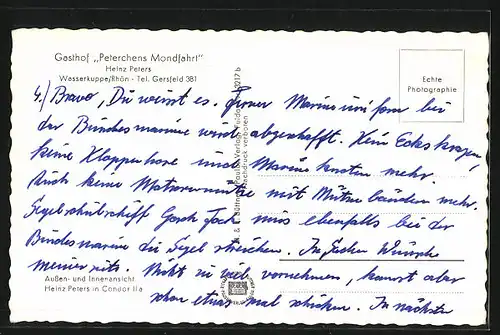 Gasthof „Peterchens Mondfahrt"
Heinz Peters
Wasserkuppe/Rhön - Tel. Gersfeld 381
Echte
Photographie
4./ Bravo, Du weisst es. Ferner Marineuniform bei
der Bundesmarine wird abgeschafft. Kein Eckskragen,
keine Klappenhose und Marineknoten mehr.
Auch keine Matrosenmütze mit Mützenbändern mehr.
Segelschulschiff Gorch Fock muss ebenfalls bei der
Bundesmarine die Segel streichen. In Sachen Wünsche
meinerseits. Nicht zu viel vornehmen, kannst aber
schon etwas mal schicken. In nächster
Außen- und Innenansicht
Heinz Peters in Condor IIa
Nachdruck verboten